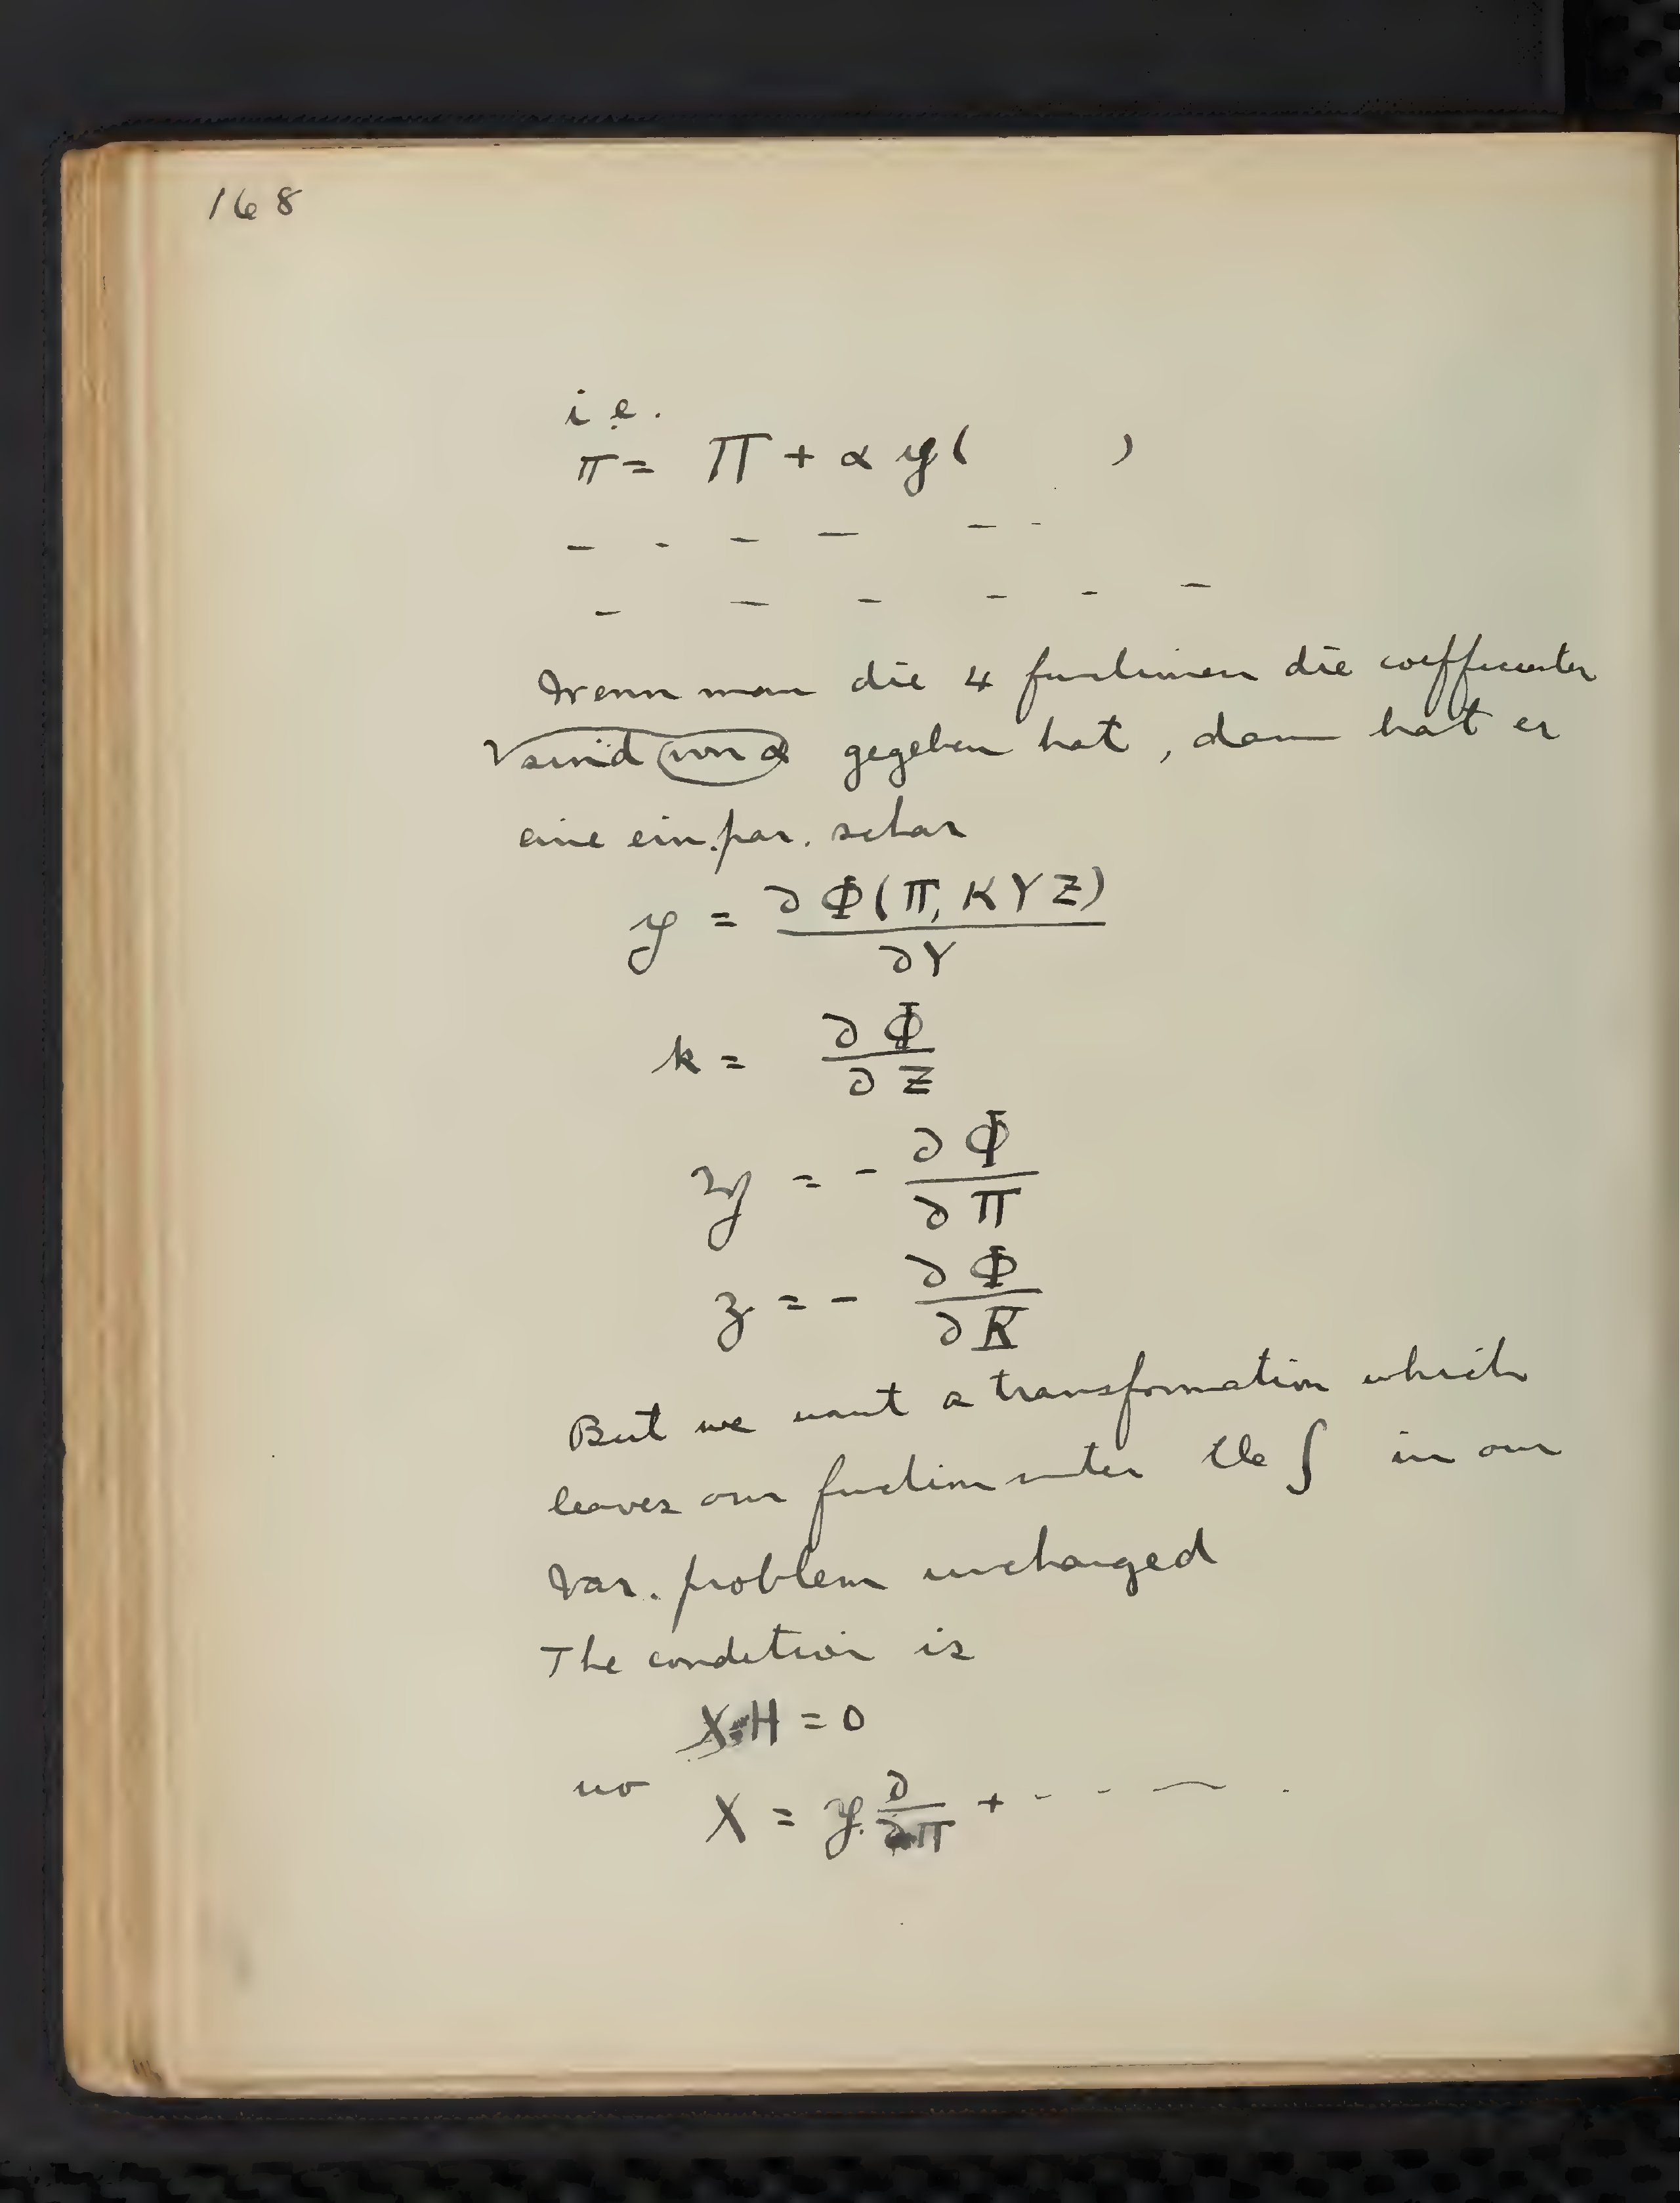 168
i.e.
π = Π + α y(          )
– - – — – -
– — – – - –
Wenn man die 4 funtionen die coefficienten
sind von α gegeben hat, dann hat er
eine ein.par. schar
y = ∂Φ(Π, K Y Z) / ∂Y
k = ∂Φ / ∂Z
y = - ∂Φ / ∂Π
z = - ∂Φ / ∂K
But we want a transformation which
leaves our function unter the ∫ in our
Var. problem unchanged
The condition is
X H = 0
wo
X = y ∂/∂Π + - - — .